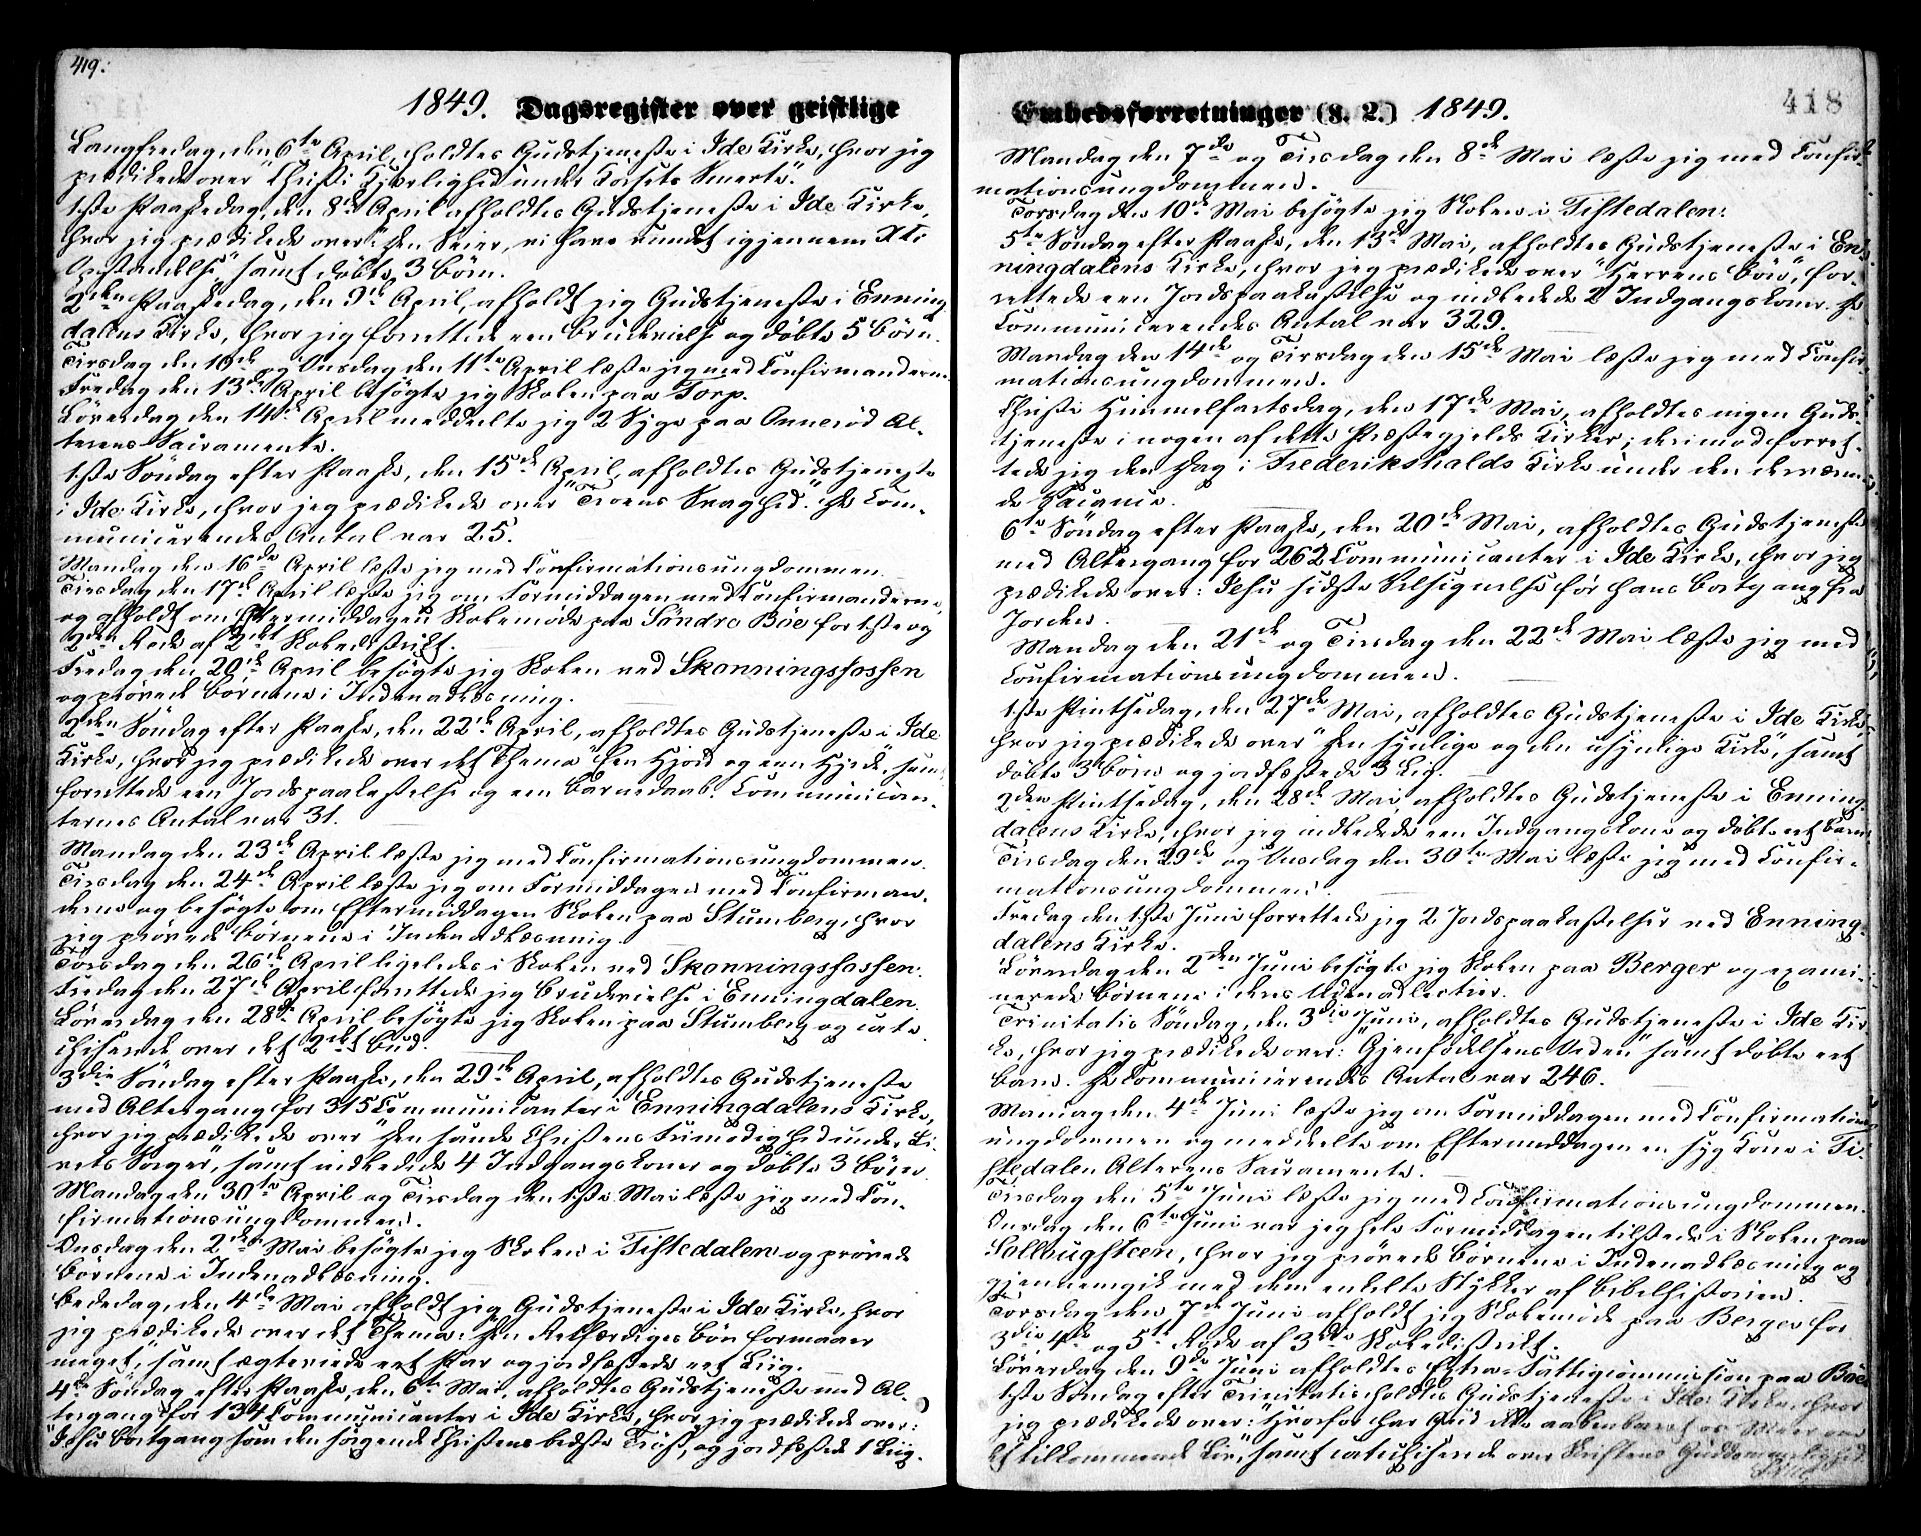 419.
1849. Dagsregister over geistlige
Langfredag, den 6te April, holdtes Gudstjeneste i Ide Kirke, hvor jeg
prædikede over "Christi Kjærlighed under Korsets Smerte."
1ste Paaskedag, den 8de April afholdtes Gudstjeneste i Ide Kirke,
hvor jeg prædikede over: "Den Seier, vi have vundet igjennem Xti
Opstandelse" samt døbte 3 Børn.
2den Paaskedag, den 9de April, afholdt jeg Gudstjeneste i Enning-
dalens Kirke, hvor jeg forrettede een Brudevielse og døbte 5 Børn.
Tirsdag den 10de og Onsdag den 11te April læste jeg med Confirmanderne.
Fredag den 13de April besøgte jeg Skolen paa Torp.
Løverdag den 14de April meddeelte jeg 2 Syge paa Onnerød Al-
terens Sacramente.
1ste Søndag efter Paaske, den 15de April, afholdtes Gudstjeneste
i Ide Kirke, hvor jeg prædikede over "Troens Svaghed." De Com-
municerendes Antal var 25.
Mandag den 16de April læste jeg med Confirmationsungdommen.
Tirsdag den 17de April læste jeg om Formiddagen med Confirmanderne,
og afholdt om Eftermiddagen Skolemøde paa Søndre Bøe for 1ste og
2den Rode af 2det Skoledistrikt.
Fredag den 20de April besøgte jeg Skolen ved Skonningsfossen
og prøvede Børnene i Indenadlæsning.
2den Søndag efter Paaske, den 22de April, afholdtes Gudstjeneste i Ide
Kirke, hvor jeg prædikede over det Thema "Een Hjord og een Hyrde", samt
forrettede een Jordspaakastelse og een Barnedaab. Communican-
ternes Antal var 31.
Mandag den 23de April læste jeg med Confirmationsungdommen.
Tirsdag den 24de April læste jeg om Formiddagen med Confirman-
derne og besøgte om Eftermiddagen Skolen paa Stumberg, hvor
jeg prøvede Børnene i Indenadlæsning.
Torsdag den 26de April ligeledes i Skolen ved Skonningsfossen.
Fredag den 27de April forrettede jeg Brudevielse i Enningdalen.
Løverdag den 28de April besøgte jeg Skolen paa Stumberg og cate-
chiserede over det 2det Bud.
3die Søndag efter Paaske, den 29de April, afholdtes Gudstjeneste
med Altergang for 315 Communicanter i Enningdalens Kirke,
hvor jeg prædikede over "Den sande Christens Frimodighed under Li-
vets Sorger", samt indledede 4 Indgangskoner og døbte 3 Børn.
Mandag den 30te April og Tirsdag den 1ste Mai læste jeg med Con-
firmationsungdommen.
Onsdag den 2den Mai besøgte jeg Skolen i Tistedalen og prøvede
Børnene i Indenadlæsning.
Bededag, den 4de Mai afholdt jeg Gudstjeneste i Ide Kirke, hvor
jeg prædikede over det Thema: "Den Retfærdiges Bøn formaaer
meget," samt ægteviede eet Par og jordfæstede eet Liig.
4de Søndag efter Paaske, den 6te Mai, afholdtes Gudstjeneste med Al-
tergang for 134 Communicanter i Ide Kirke, hvor jeg prædikede over:
"Jesu Bortgang som den sørgende Christens bedste Trøst, og jordfæstede 1 Liig.
Embedsforretninger (§. 2.) 1849.
418
Mandag den 7de og Tirsdag den 8de Mai læste jeg med Confir-
mationsungdommen.
Torsdag den 10de Mai besøgte jeg Skolen i Tistedalen.
5te Søndag efter Paaske, den 13de Mai, afholdtes Gudstjeneste i En-
ningdalens Kirke, hvor jeg prædikede over "Herrens Bøn", for-
rettede een Jordspaakastelse og indledede 2 Indgangskoner. De
Communicerendes Antal var 329.
Mandag den 14de og Tirsdag den 15de Mai læste jeg med Confir-
mationsungdommen.
Christi Himmelfartsdag, den 17de Mai, afholdtes ingen Guds-
tjeneste i nogen af dette Præstegjelds Kirker; derimod forret-
tede jeg den Dag i Frederikshalds Kirke under den derværen-
de Vacance.
6te Søndag efter Paaske, den 20de Mai, afholdtes Gudstjeneste
med Altergang for 262 Communicanter i Ide Kirke, hvor jeg
prædikede over: Jesu sidste Velsignelse før hans Bortgang fra
Jorden.
Mandag den 21de og Tirsdag den 22de Mai læste jeg med
Confirmationsungdommen.
1ste Pintsedag, den 27de Mai, afholdtes Gudstjeneste i Ide Kirke,
hvor jeg prædikede over "Den synlige og den usynlige Kirke", samt
døbte 3 Børn og jordfæstede 3 Liig.
2den Pintsedag, den 28de Mai, afholdtes Gudstjeneste i Enning-
dalens Kirke, hvor jeg indledede een Indgangskone og døbte eet Barn.
Tirsdag den 29de og Onsdag den 30te Mai læste jeg med Confir-
mationsungdommen.
Fredag den 1ste Juni forrettede jeg 2 Jordspaakastelser ved Enning-
dalens Kirke.
Løverdag den 2den Juni besøgte jeg Skolen paa Berger og exami-
nerede Børnene i deres Udenadlectier.
Trinitatis Søndag, den 3die Juni, afholdtes Gudstjeneste i Ide Kir-
ke, hvor jeg prædikede over: "Gjenfødelsens Orden" samt døbte eet
Barn. De Communicerendes Antal var 246.
Mandag den 4de Juni læste jeg om Formiddagen med Confirmations-
ungdommen og meddeelte om Eftermiddagen en syg Kone i Ti-
stedalen Alterens Sacramente.
Tirsdag den 5te Juni læste jeg med Confirmationsungdommen.
Onsdag den 6te Juni var jeg hele Formiddagen tilstede i Skolen paa
Solbugsteen, hvor jeg prøvede Børnene i Indenadlæsning og
gjennemgik med dem enkelte Stykker af Bibelhistorien.
Torsdag den 7de Juni afholdt jeg Skolemøde paa Berger for
3die 4de og 5te Rode af 3die Skoledistrikt.
Løverdag den 9de Juni afholdtes Extra-Fattigcommission paa Bøe.
1ste Søndag efter Trinitatis holdtes Gudstjeneste i Ide Kirke, hvor
jeg prædikede over: "Hvorfor har Gud ikke aabenbaret os Meer om
det tilkommende Liv", samt catechiserede over Skriftens Guddommelighed.